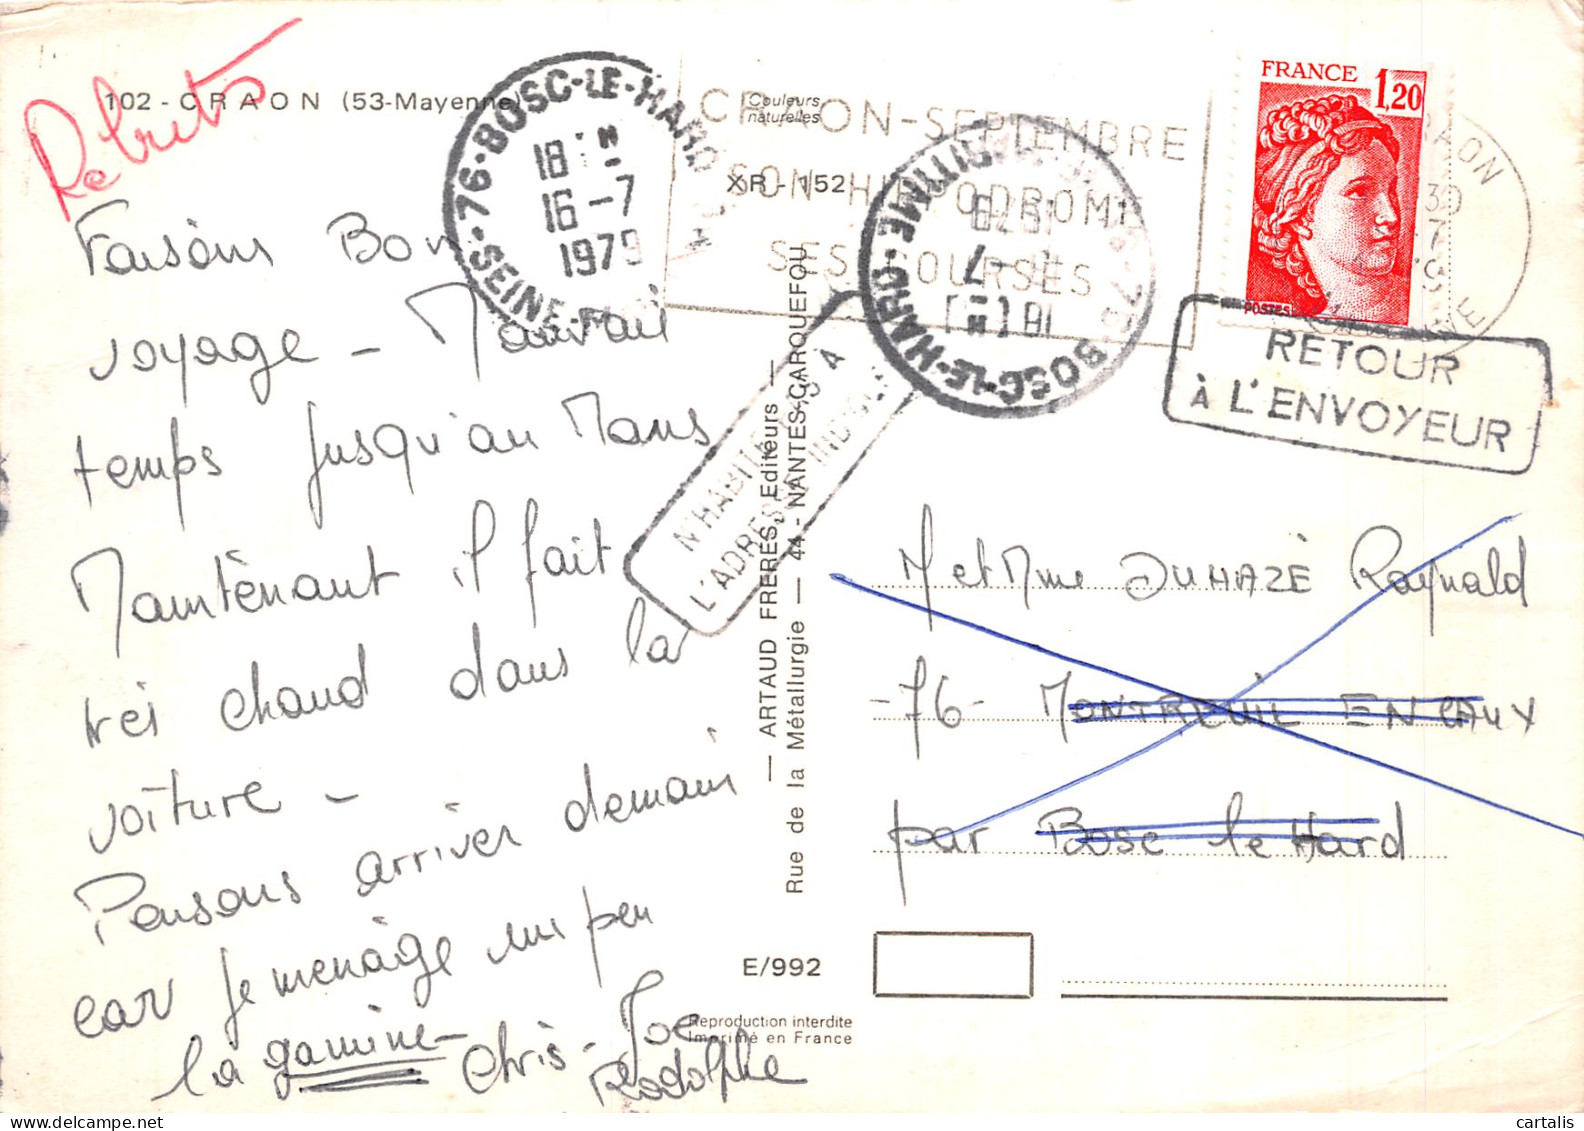 Rebuts
102 - CRAON (53-Mayenne)
Couleurs
naturelles
XR - 152
CRAON-SEPTEMBRE
SON HIPPODROME
SES COURSES
76-BOSC-LE-HARD
SEINE-
16-7
1979
BOSC-LE-HARD
FRANCE
1,20
POSTES
RETOUR
À L'ENVOYEUR
N'HABITE PAS A
L'ADRESSE INDIQ
Faisons Bon
voyage - Mauvais
temps jusqu'au Mans
Maintènant il fait
très chaud dans la
voiture -
Pensons arriver demain
car je menàge un peu
la gamine - Chris - Joe
Rodolphe
ARTAUD FRERES, Editeurs
Rue de la Métallurgie — 44 - NANTES-CARQUEFOU
M et Mme DUHAZÉ Raynald
-76- MONTREUIL EN CAUX
par Bosc le Hard
E/992
Reproduction interdite
Imprimé en France
cartalis
delcampe.net